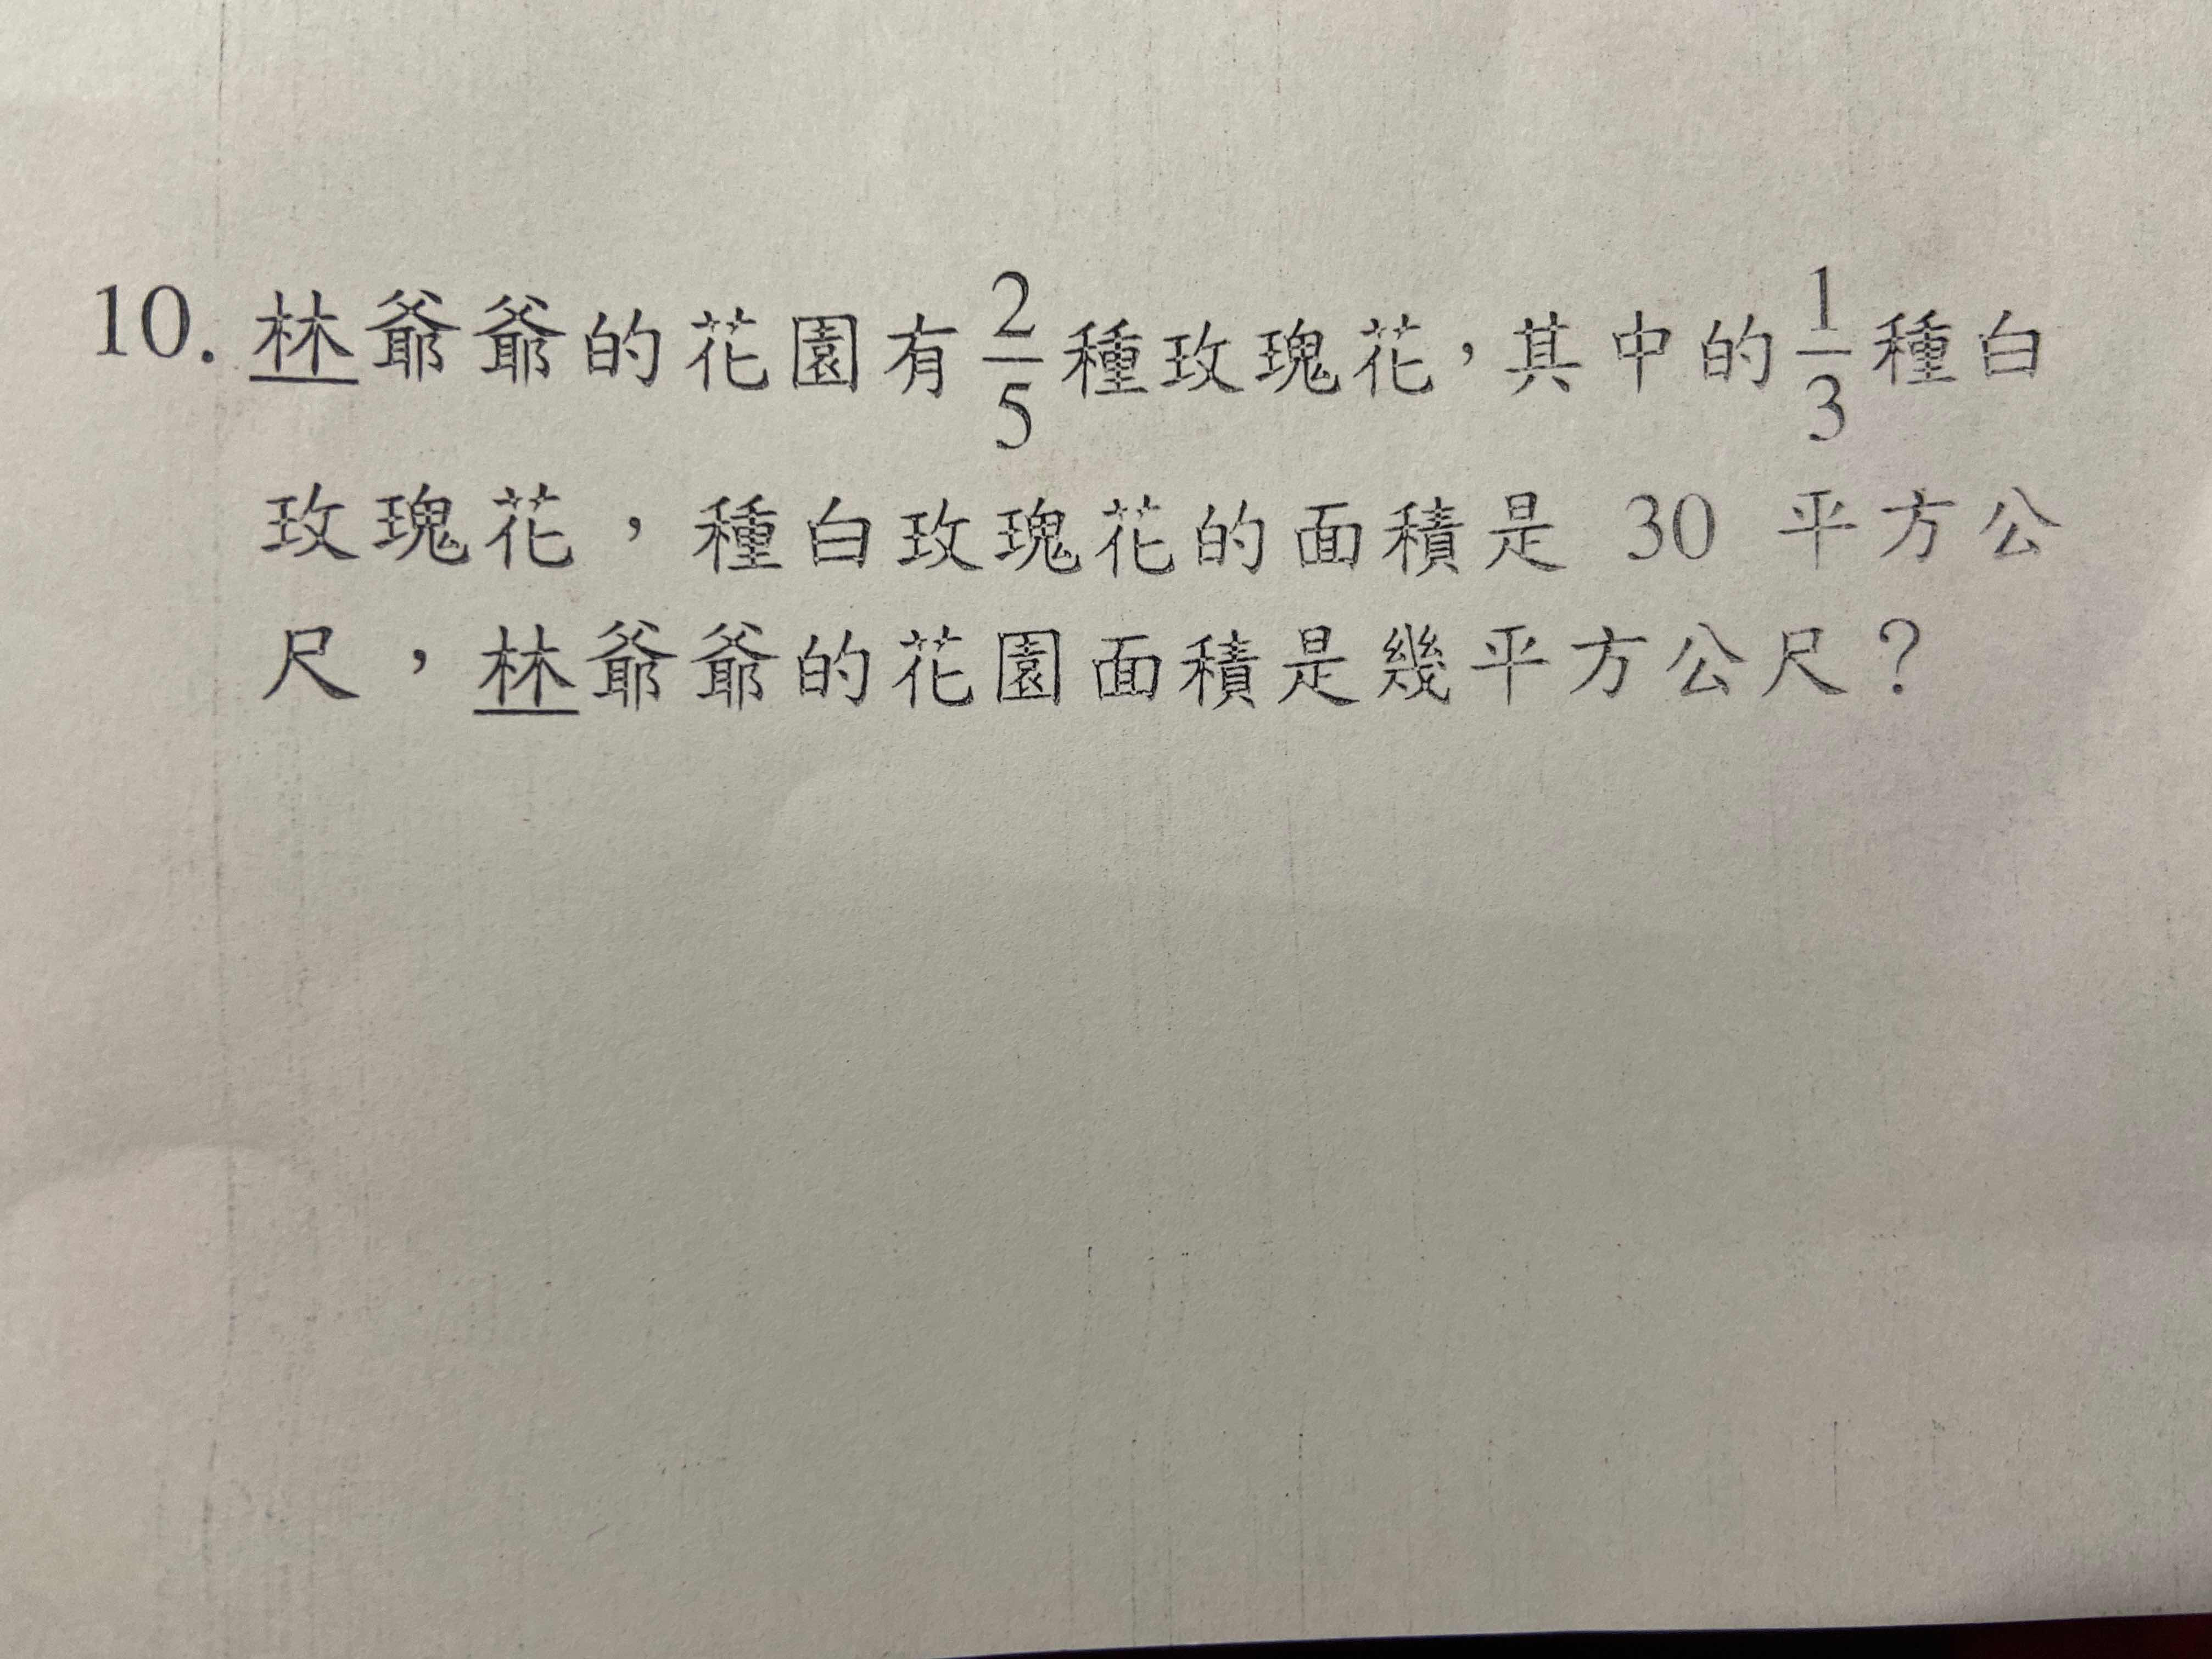 10. 林爺爺的花園有2/5種玫瑰花，其中的1/3種白
玫瑰花，種白玫瑰花的面積是 30 平方公
尺，林爺爺的花園面積是幾平方公尺？